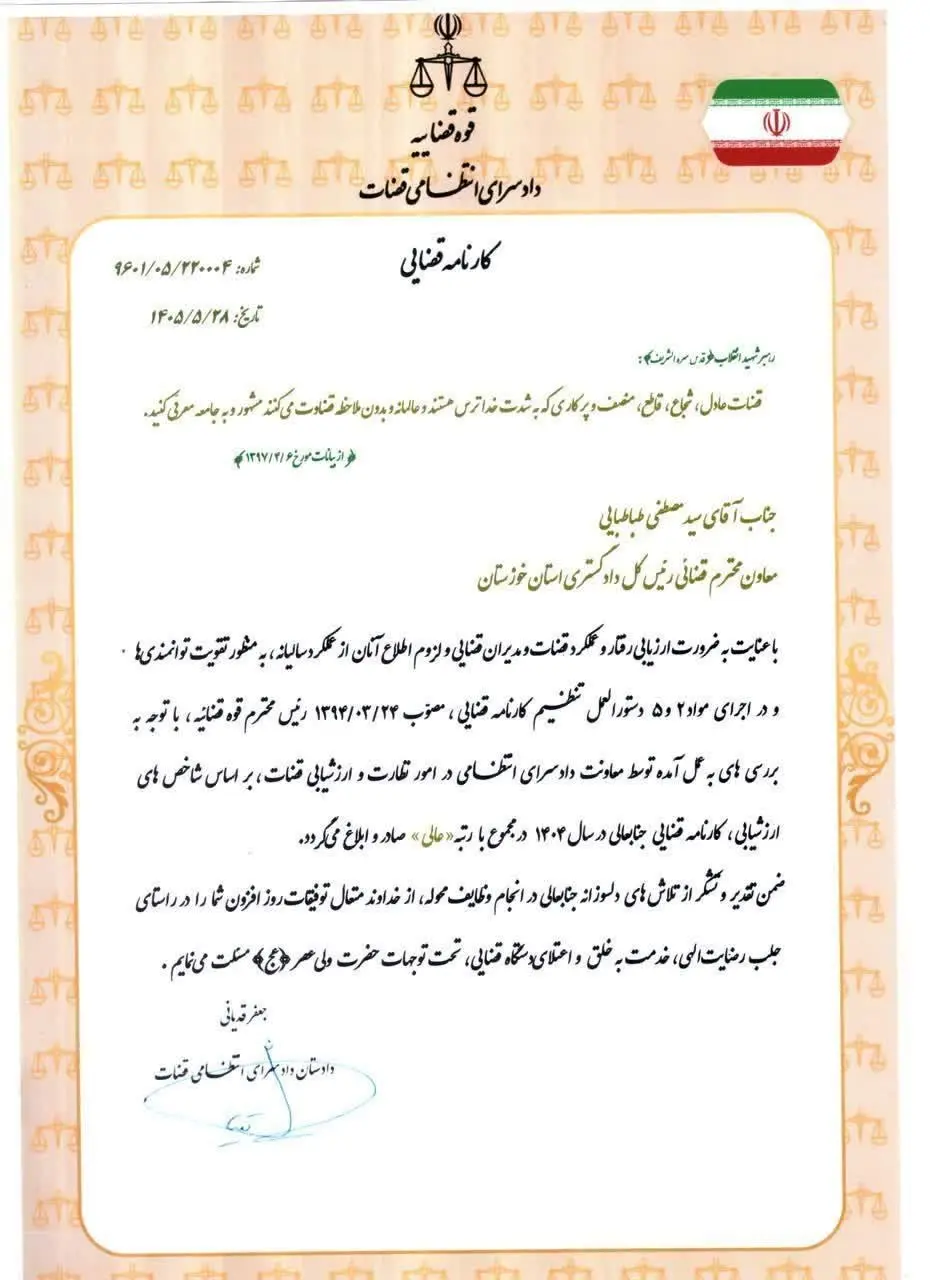 قوه قضاییه
دادسرای انتظامی قضات
کارنامه قضایی
شماره: ۹۶۰۱/۰۵/۲۲۰۰۰۴
تاریخ: ۱۴۰۵/۵/۲۸
رهبر شهید انقلاب﴿قدس سره الشریف﴾:
قضات عادل، شجاع، قاطع، منصف و پرکاری که به شدت خداترس هستند و عالمانه و بدون ملاحظه قضاوت می‌کنند مشهور و به جامعه معرفی کنید.
﴿از بیانات مورخ ۱۳۹۷/۴/۶﴾
جناب آقای سید مصطفی طباطبایی
معاون محترم قضائی رئیس کل دادگستری استان خوزستان
با عنایت به ضرورت ارزیابی رفتار و عملکرد قضات و مدیران قضایی و لزوم اطلاع آنان از عملکرد سالیانه، به منظور تقویت توانمندی‌ها
و در اجرای مواد ۲ و ۵ دستورالعمل تنظیم کارنامه قضایی، مصوّب ۱۳۹۴/۰۳/۲۴ رئیس محترم قوه قضائیه، با توجه به
بررسی های به عمل آمده توسط معاونت دادسرای انتظامی در امور نظارت و ارزشیابی قضات، بر اساس شاخص های
ارزشیابی، کارنامه قضایی جنابعالی در سال ۱۴۰۴ در مجموع با رتبه «عالی» صادر و ابلاغ می‌گردد.
ضمن تقدیر و تشکر از تلاش های دلسوزانه جنابعالی در انجام وظایف محوله، از خداوند متعال توفیقات روز افزون شما را در راستای
جلب رضایت الهی، خدمت به خلق و اعتلای دستگاه قضایی، تحت توجهات حضرت ولی عصر﴿عج﴾ مسئلت می‌نمایم.
جعفر قدیانی
دادستان دادسرای انتظامی قضات